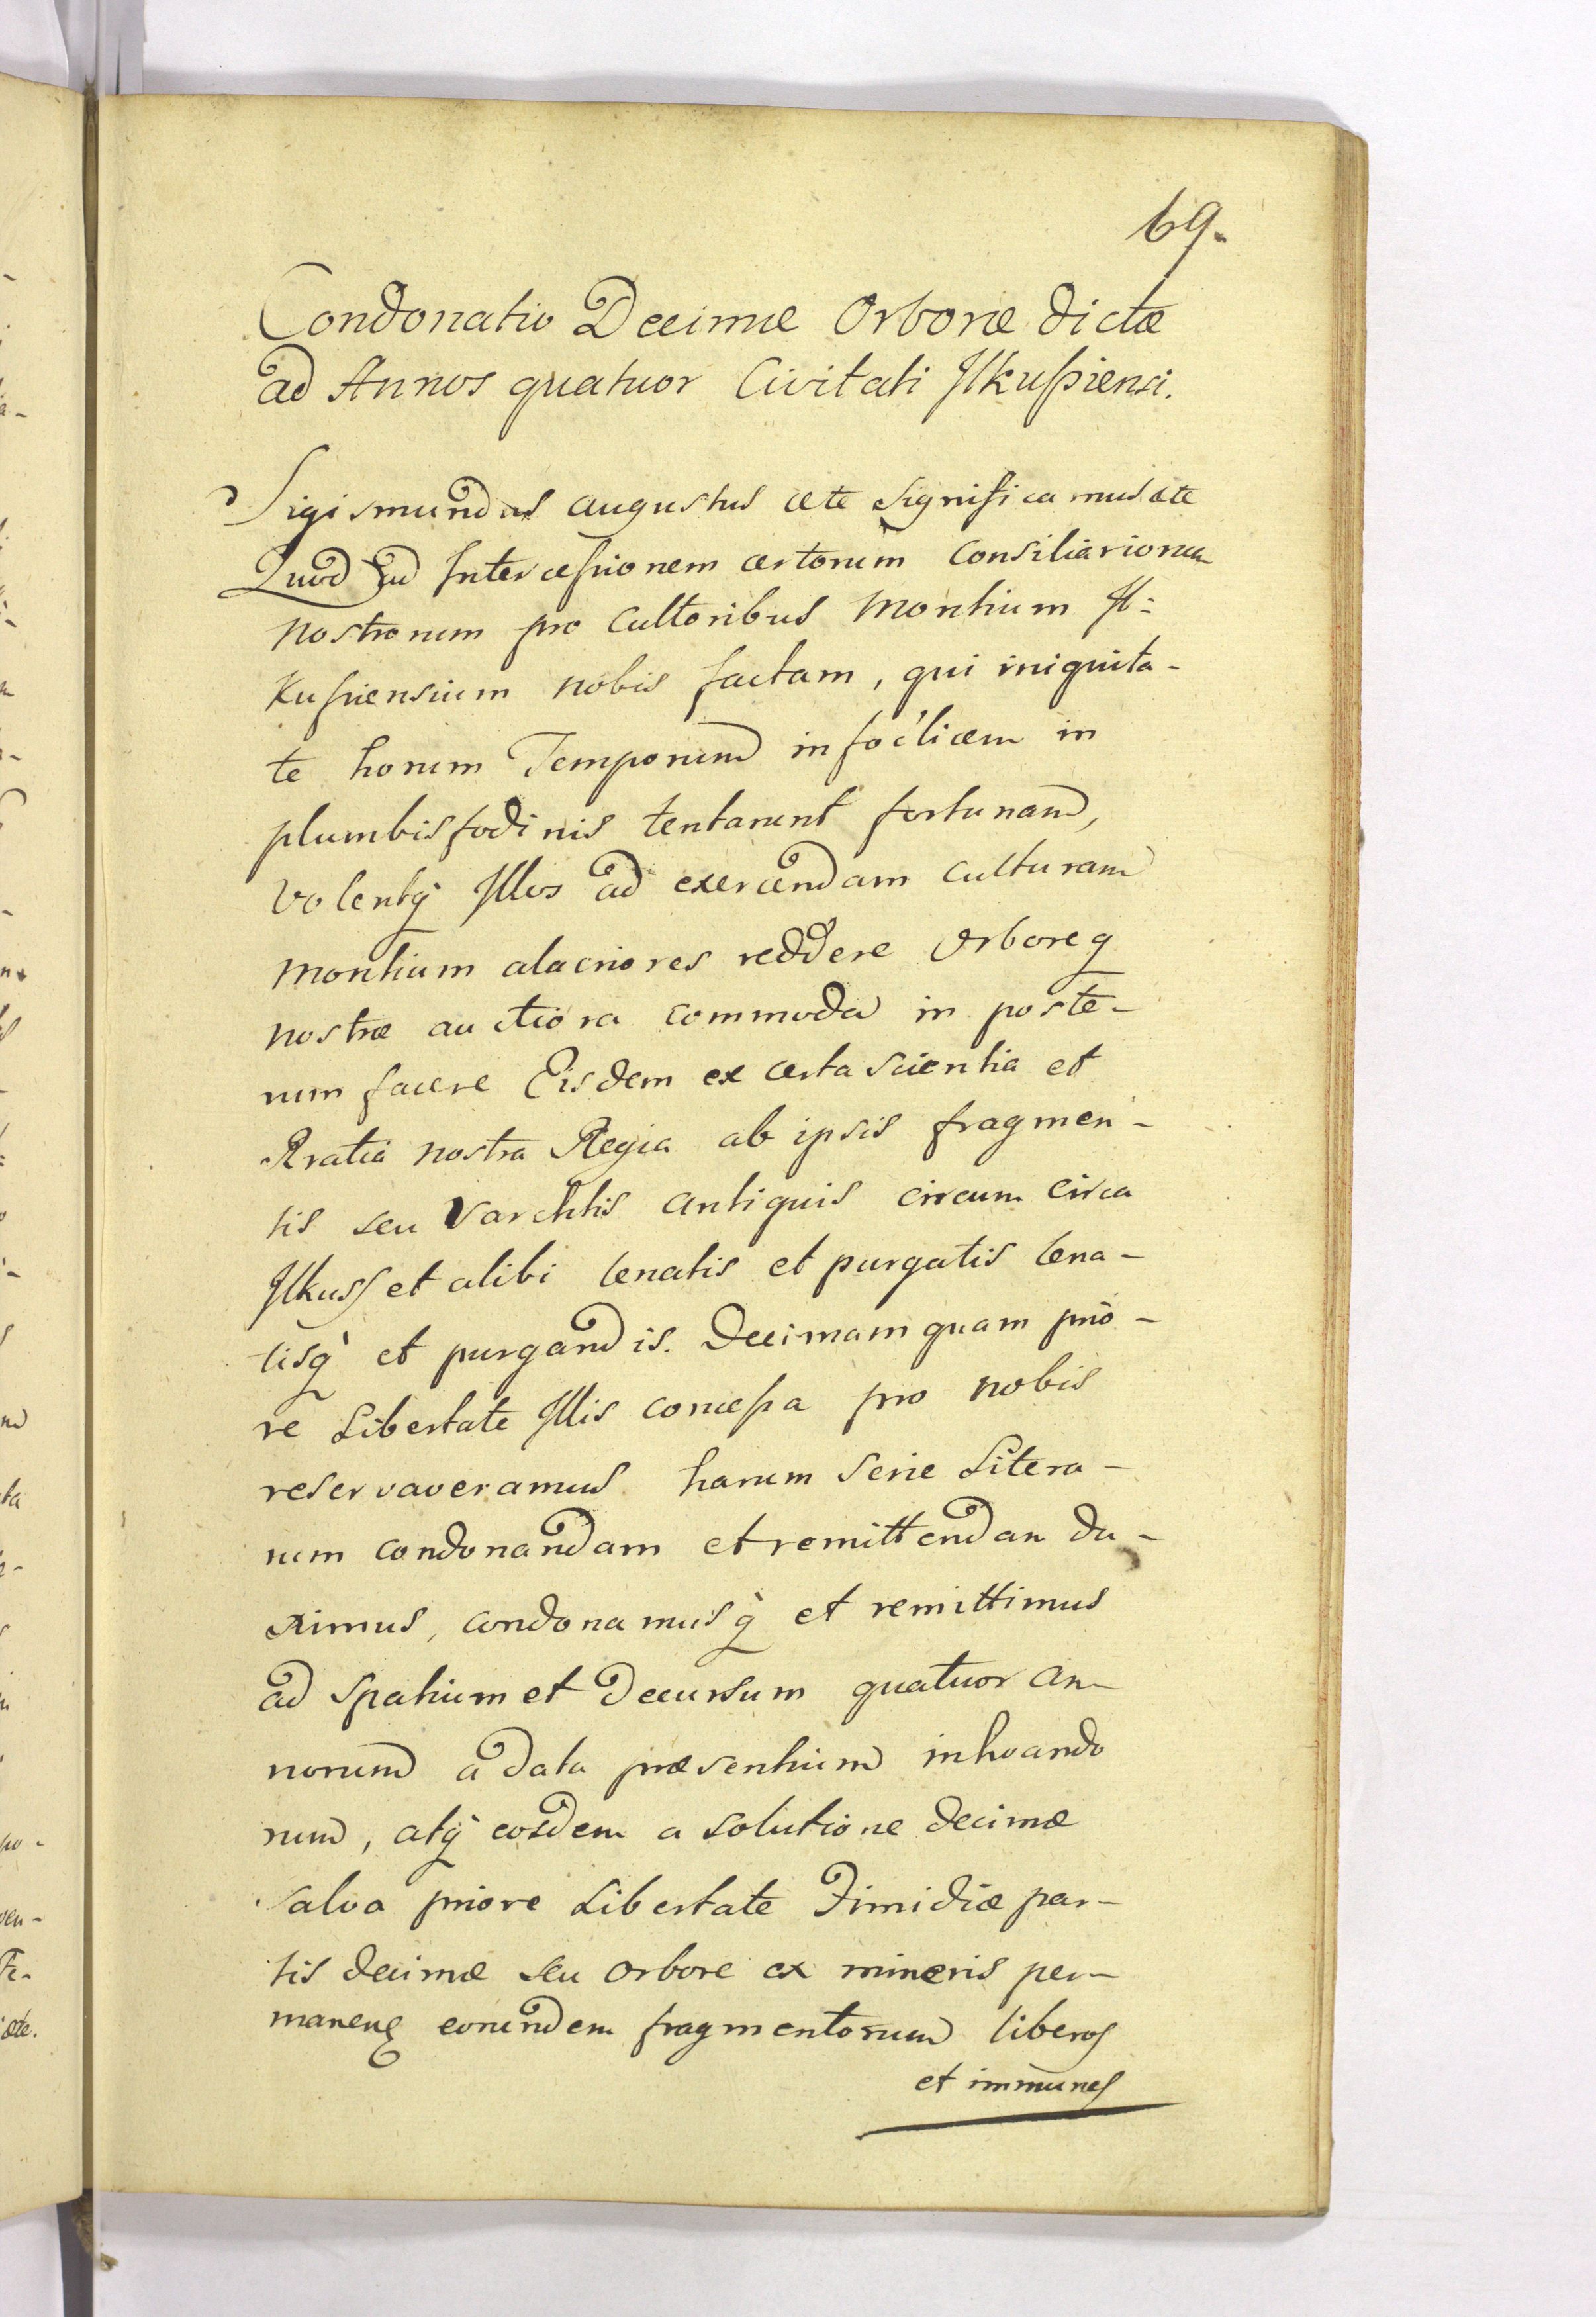 69.
Condonatio Decimæ Orboræ dictæ
ad Annos quatuor Civitati Ilkußiensi.
Sigismundus augustus ætc significamus ætc
Quod ad Intercessionem certorum Consiliariorum
nostrorum pro Cultoribus Montium Il=
kussiensium nobis factam, qui iniquita-
te horum Temporum infœlicem in
plumbisfodinis tentarunt fortunam,
Volentq́ Illos ad exercendam Culturam
Montium alacriores reddere Orboreq
nostræ auctiora commoda in poste-
rum facere Eisdem ex certa Scientia et
Gratia nostra Regia ab ipsis fragmen-
tis seu Varchtis antiquis circum circa
Ilkuss et alibi lenatis et purgatis lena-
tisq̀ et purgandis. Decimam quam prio-
re Libertate Illis concessa pro nobis
reservaveramus harum serie Litera-
rum condonandam et remittendan du-
ximus, condonamusq̀ et remittimus
ad Spatium et Decursum quatuor an-
norum a data præsentium inhoando
rum, atq̀ eosdem a solutione decimæ
salva priore Libertate Dimidiæ par-
tis decimæ seu orbore ex mineris per-
maneng eorundem fragmentorum liberos
et immunes